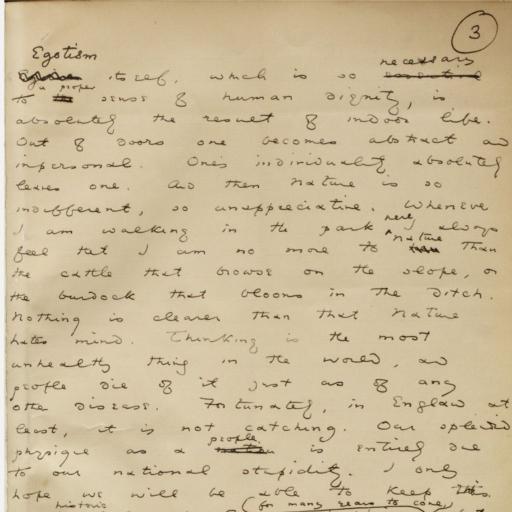 3
Egotism
necessary
itself, which is so essential
a proper
to the sense of human dignity, is
absolutely the result of indoor life.
Out of doors one becomes abstract and
impersonal. One's individuality absolutely
leaves one. And then Nature is so
indifferent, so unappreciative. Whenever
I am walking in the park here, always
feel that I am no more to Nature than
the cattle that browse on the slope, or
the burdock that blooms in the ditch.
Nothing is clearer than that Nature
hates mind. Thinking is the most
unhealthy thing in the world, and
people die of it just as of any
other disease. Fortunately, in England at
least, it is not catching. Our splendid
people
physique as a nation is entirely due
to our national stupidity. I only
hope we will be able to keep this
historic (for many years to come)